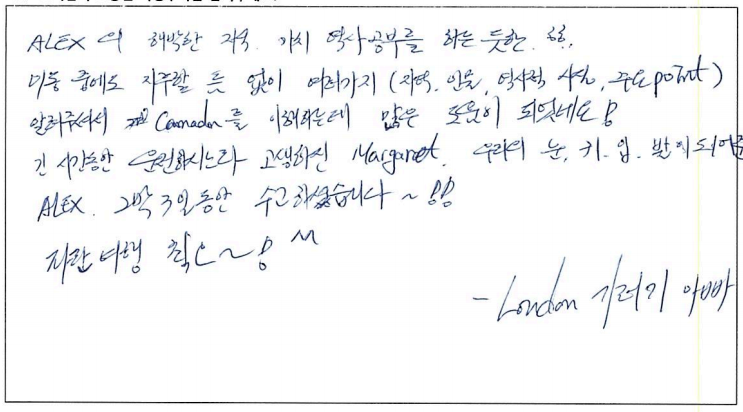 ALEX의 해박한 지식. 가치 역사공부를 하는 듯한. ㅎㅎ.
이동 중에도 지루할 틈 없이 여러가지 (지역, 인물, 역사적 사실, 주요 point)
알려주셔서 Canada를 이해하는데 많은 도움이 되었네요!
긴 시간동안 운전하시느라 고생하신 Margaret. 우리의 눈, 귀, 입, 발이 되어준
ALEX. 2박 3일동안 수고하셨습니다 ~!!
자란여행 최고~! ^^
- London 기러기 아빠